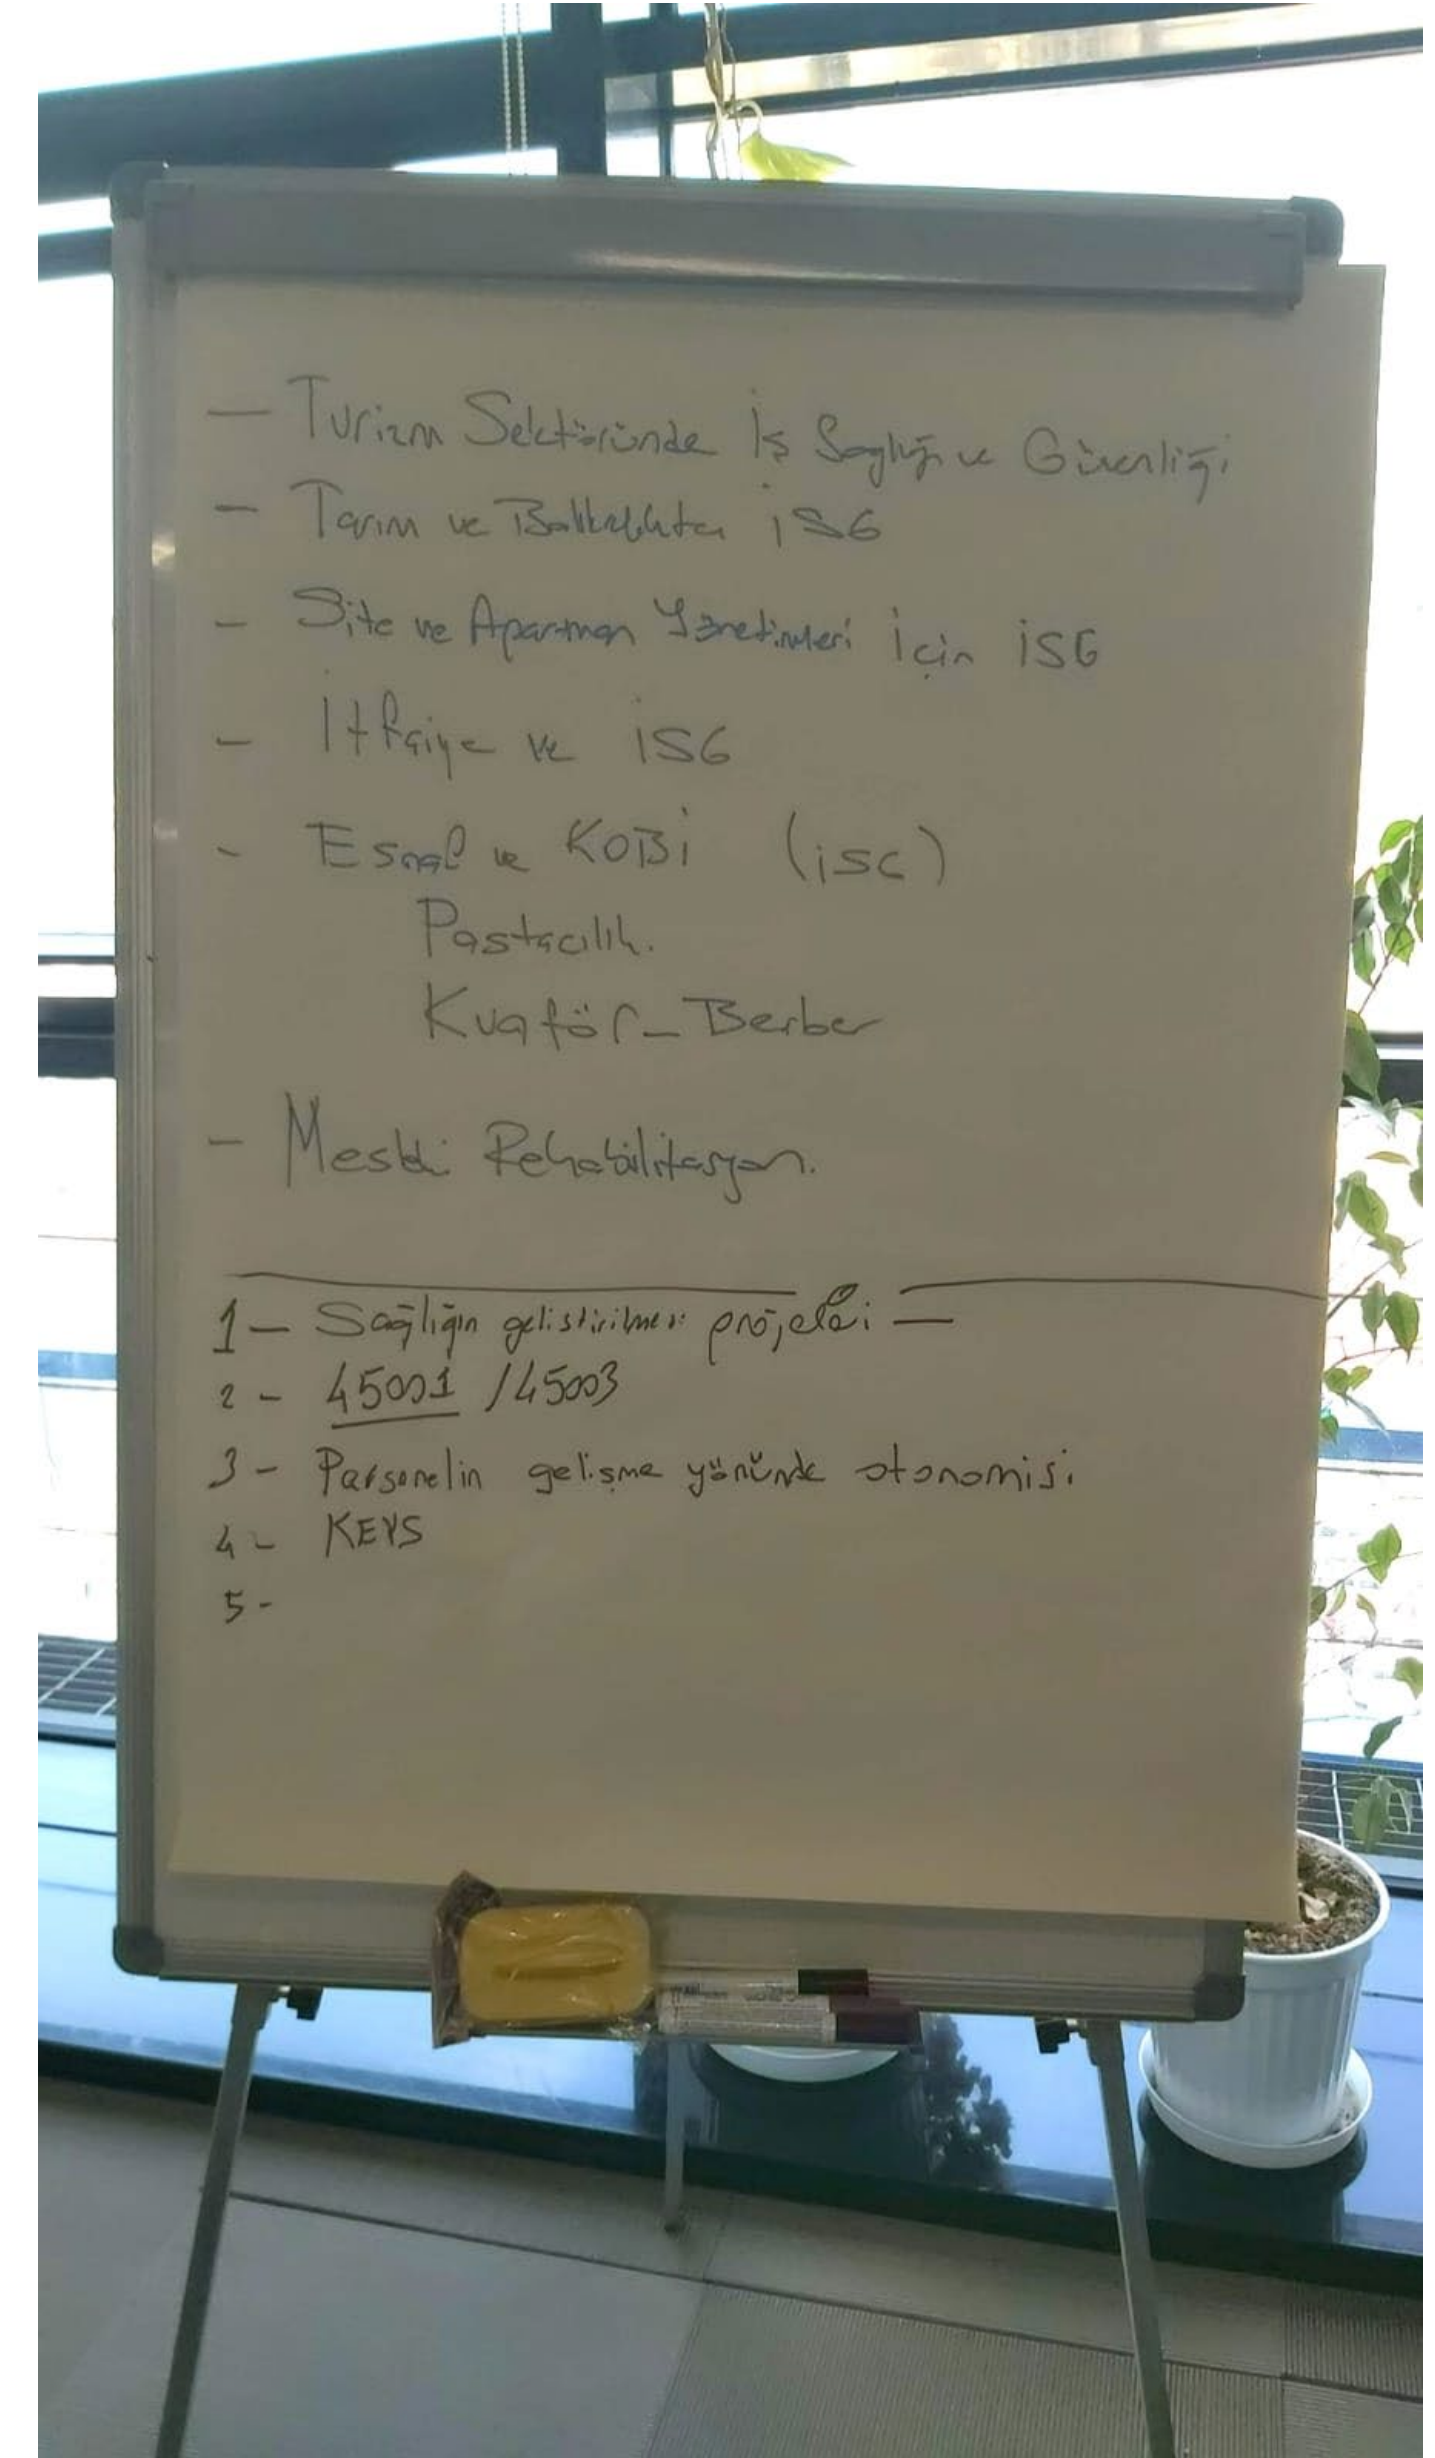 — Turizm Sektöründe İş Sağlığı ve Güvenliği
- Tarım ve Balıkçılıkta İSG
- Site ve Apartman Yönetimleri İçin İSG
- İtfaiye ve İSG
- Esnaf ve KOBİ (İSG)
Pastacılık.
Kuaför - Berber
- Mesleki Rehabilitasyon.
1 — Sağlığın geliştirilmesi projeleri —
2 - 45001 / 45003
3 - Personelin gelişme yönünde otonomisi
4 - KEYS
5 -